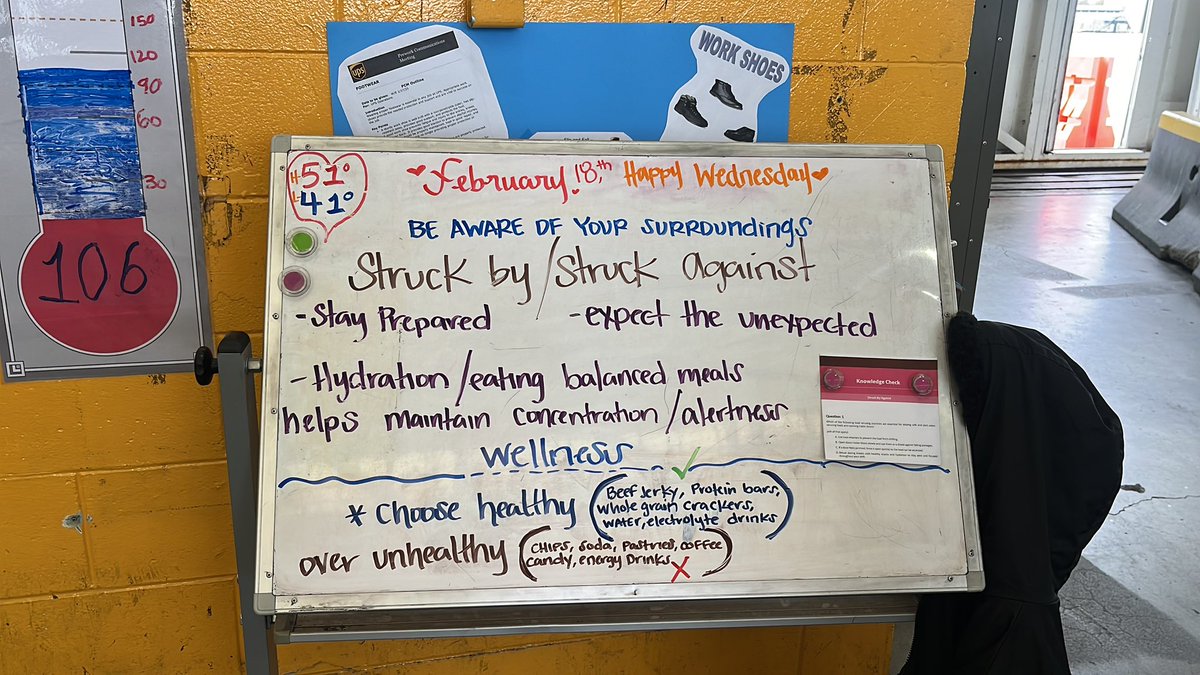 150
120
90
60
30
106
Prework Communications
Meeting
ups
FOOTWEAR PCM Outline
Introduction
WORK SHOES
H 51°
L 41°
February 18,th Happy Wednesday
BE AWARE OF YOUR SURROUNDINGS
Struck by/Struck Against
-Stay Prepared -expect the unexpected
-Hydration/eating balanced meals
helps maintain concentration/alertness
Wellness
* Choose healthy (Beef Jerky, Protein bars,
whole grain crackers,
WATER, electrolyte drinks)
over unhealthy (CHIPS, soda, Pastries, coffee
candy, energy Drinks)
Knowledge Check
Struck By/Against
Question: 1